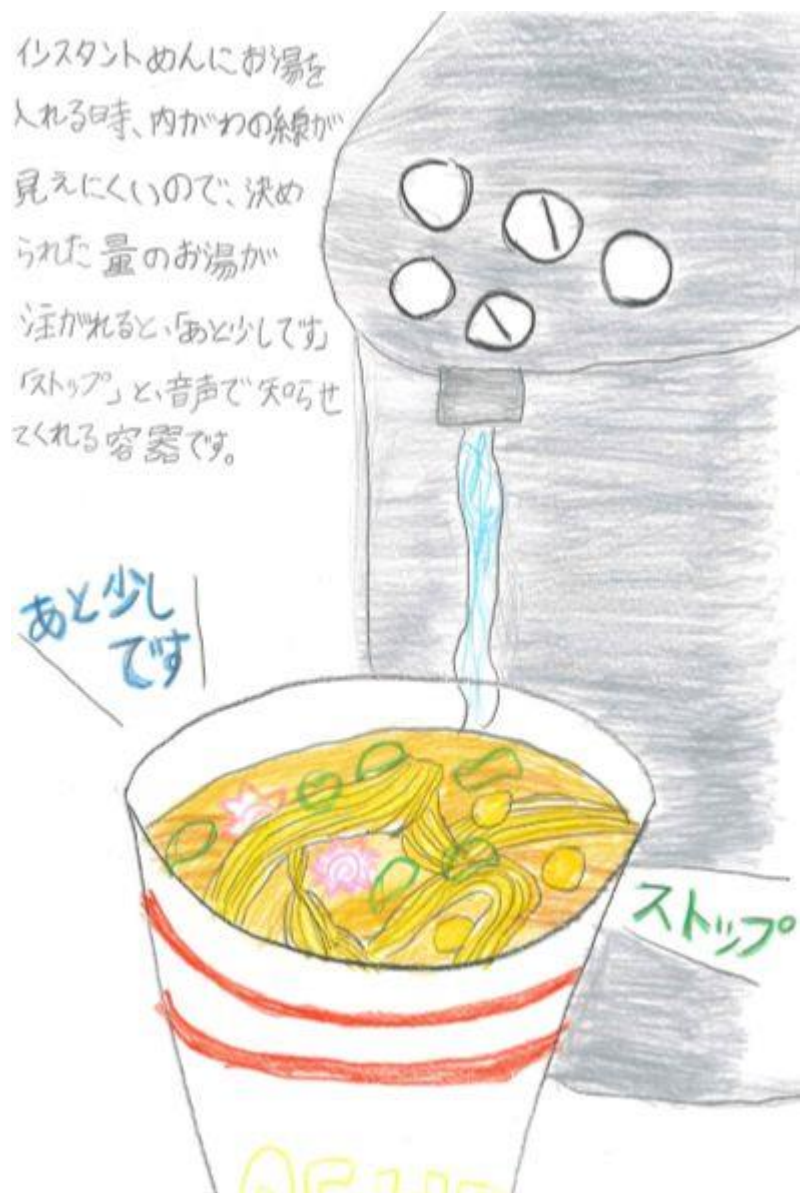 インスタントめんにお湯を
入れる時、内がわの線が
見えにくいので、決め
られた量のお湯が
注がれると、「あと少しです」
「ストップ」と、音声で知らせ
てくれる容器です。
あと少し
です
ストップ